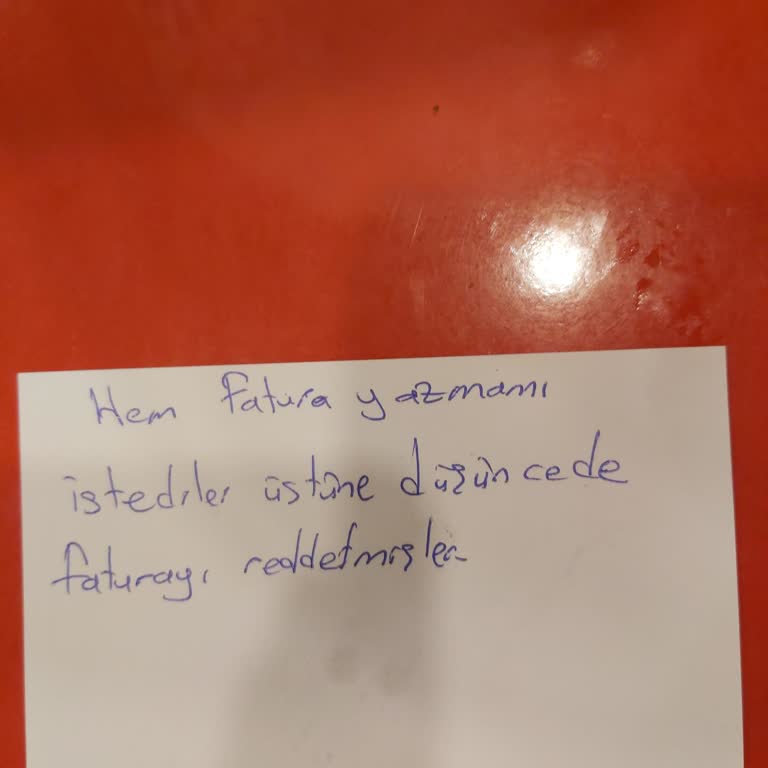 Hem fatura yazmamı
istediler üstüne düşüncede
faturayı reddetmişler